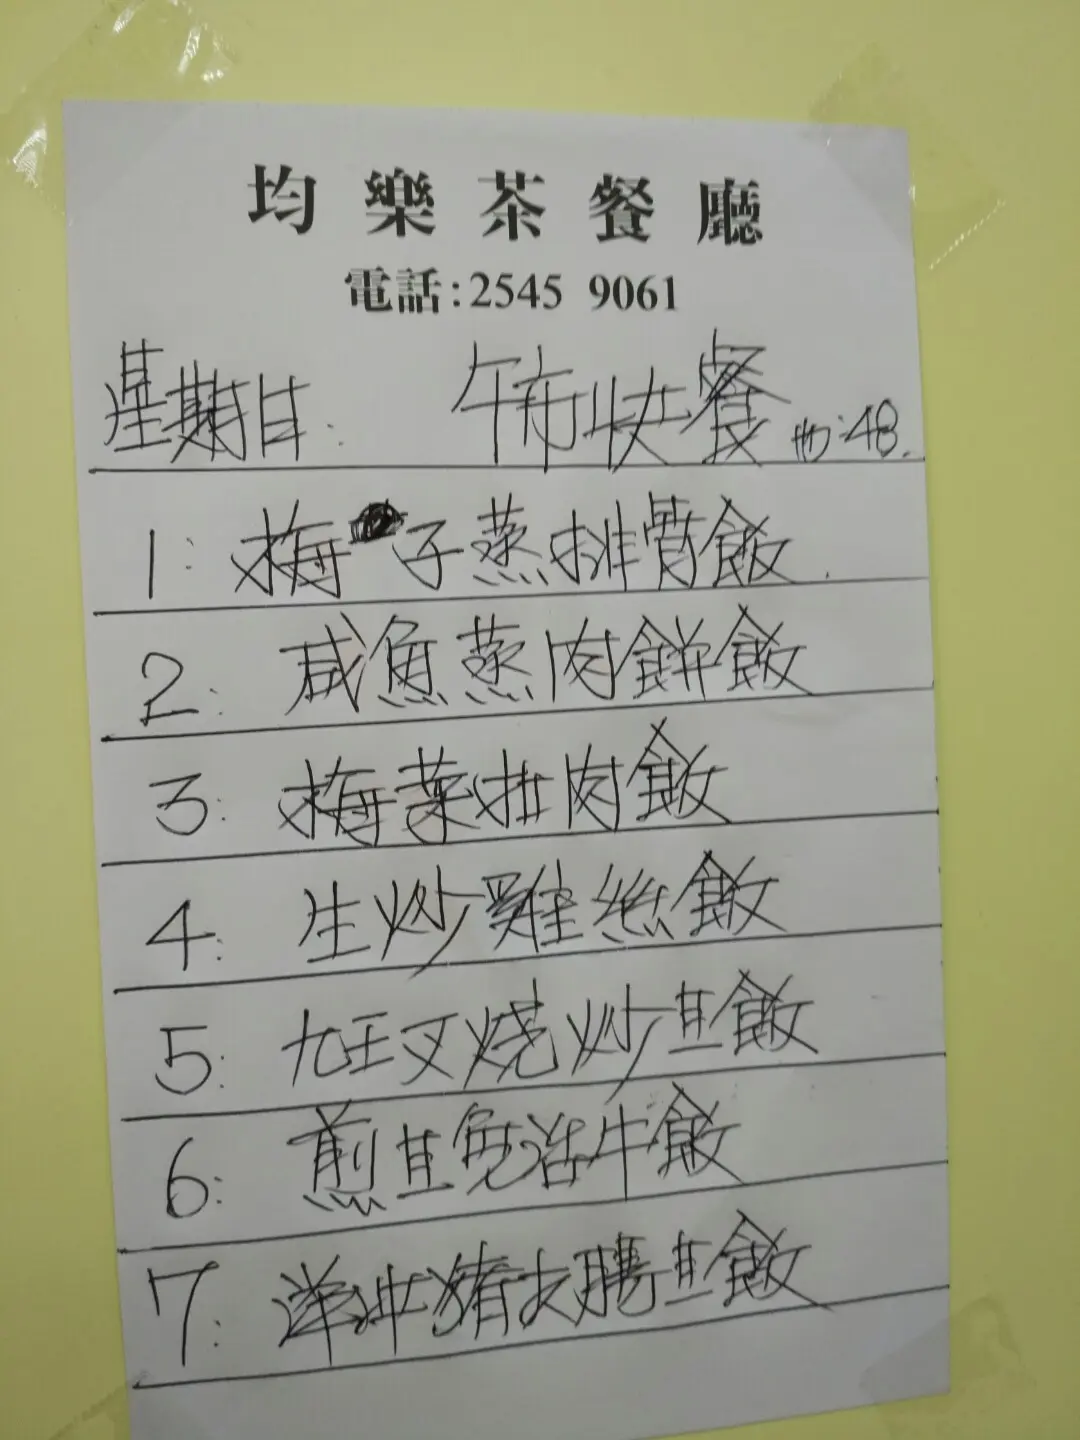 均樂茶餐廳
電話:2545 9061
星期日: 午市快餐 48.
1: 梅子蒸排骨飯.
2: 咸魚蒸肉餅飯
3: 梅菜扣肉飯
4: 生炒雞絲飯
5: 叉燒炒旦飯
6: 煎旦免治牛飯
7: 豬大腸旦飯